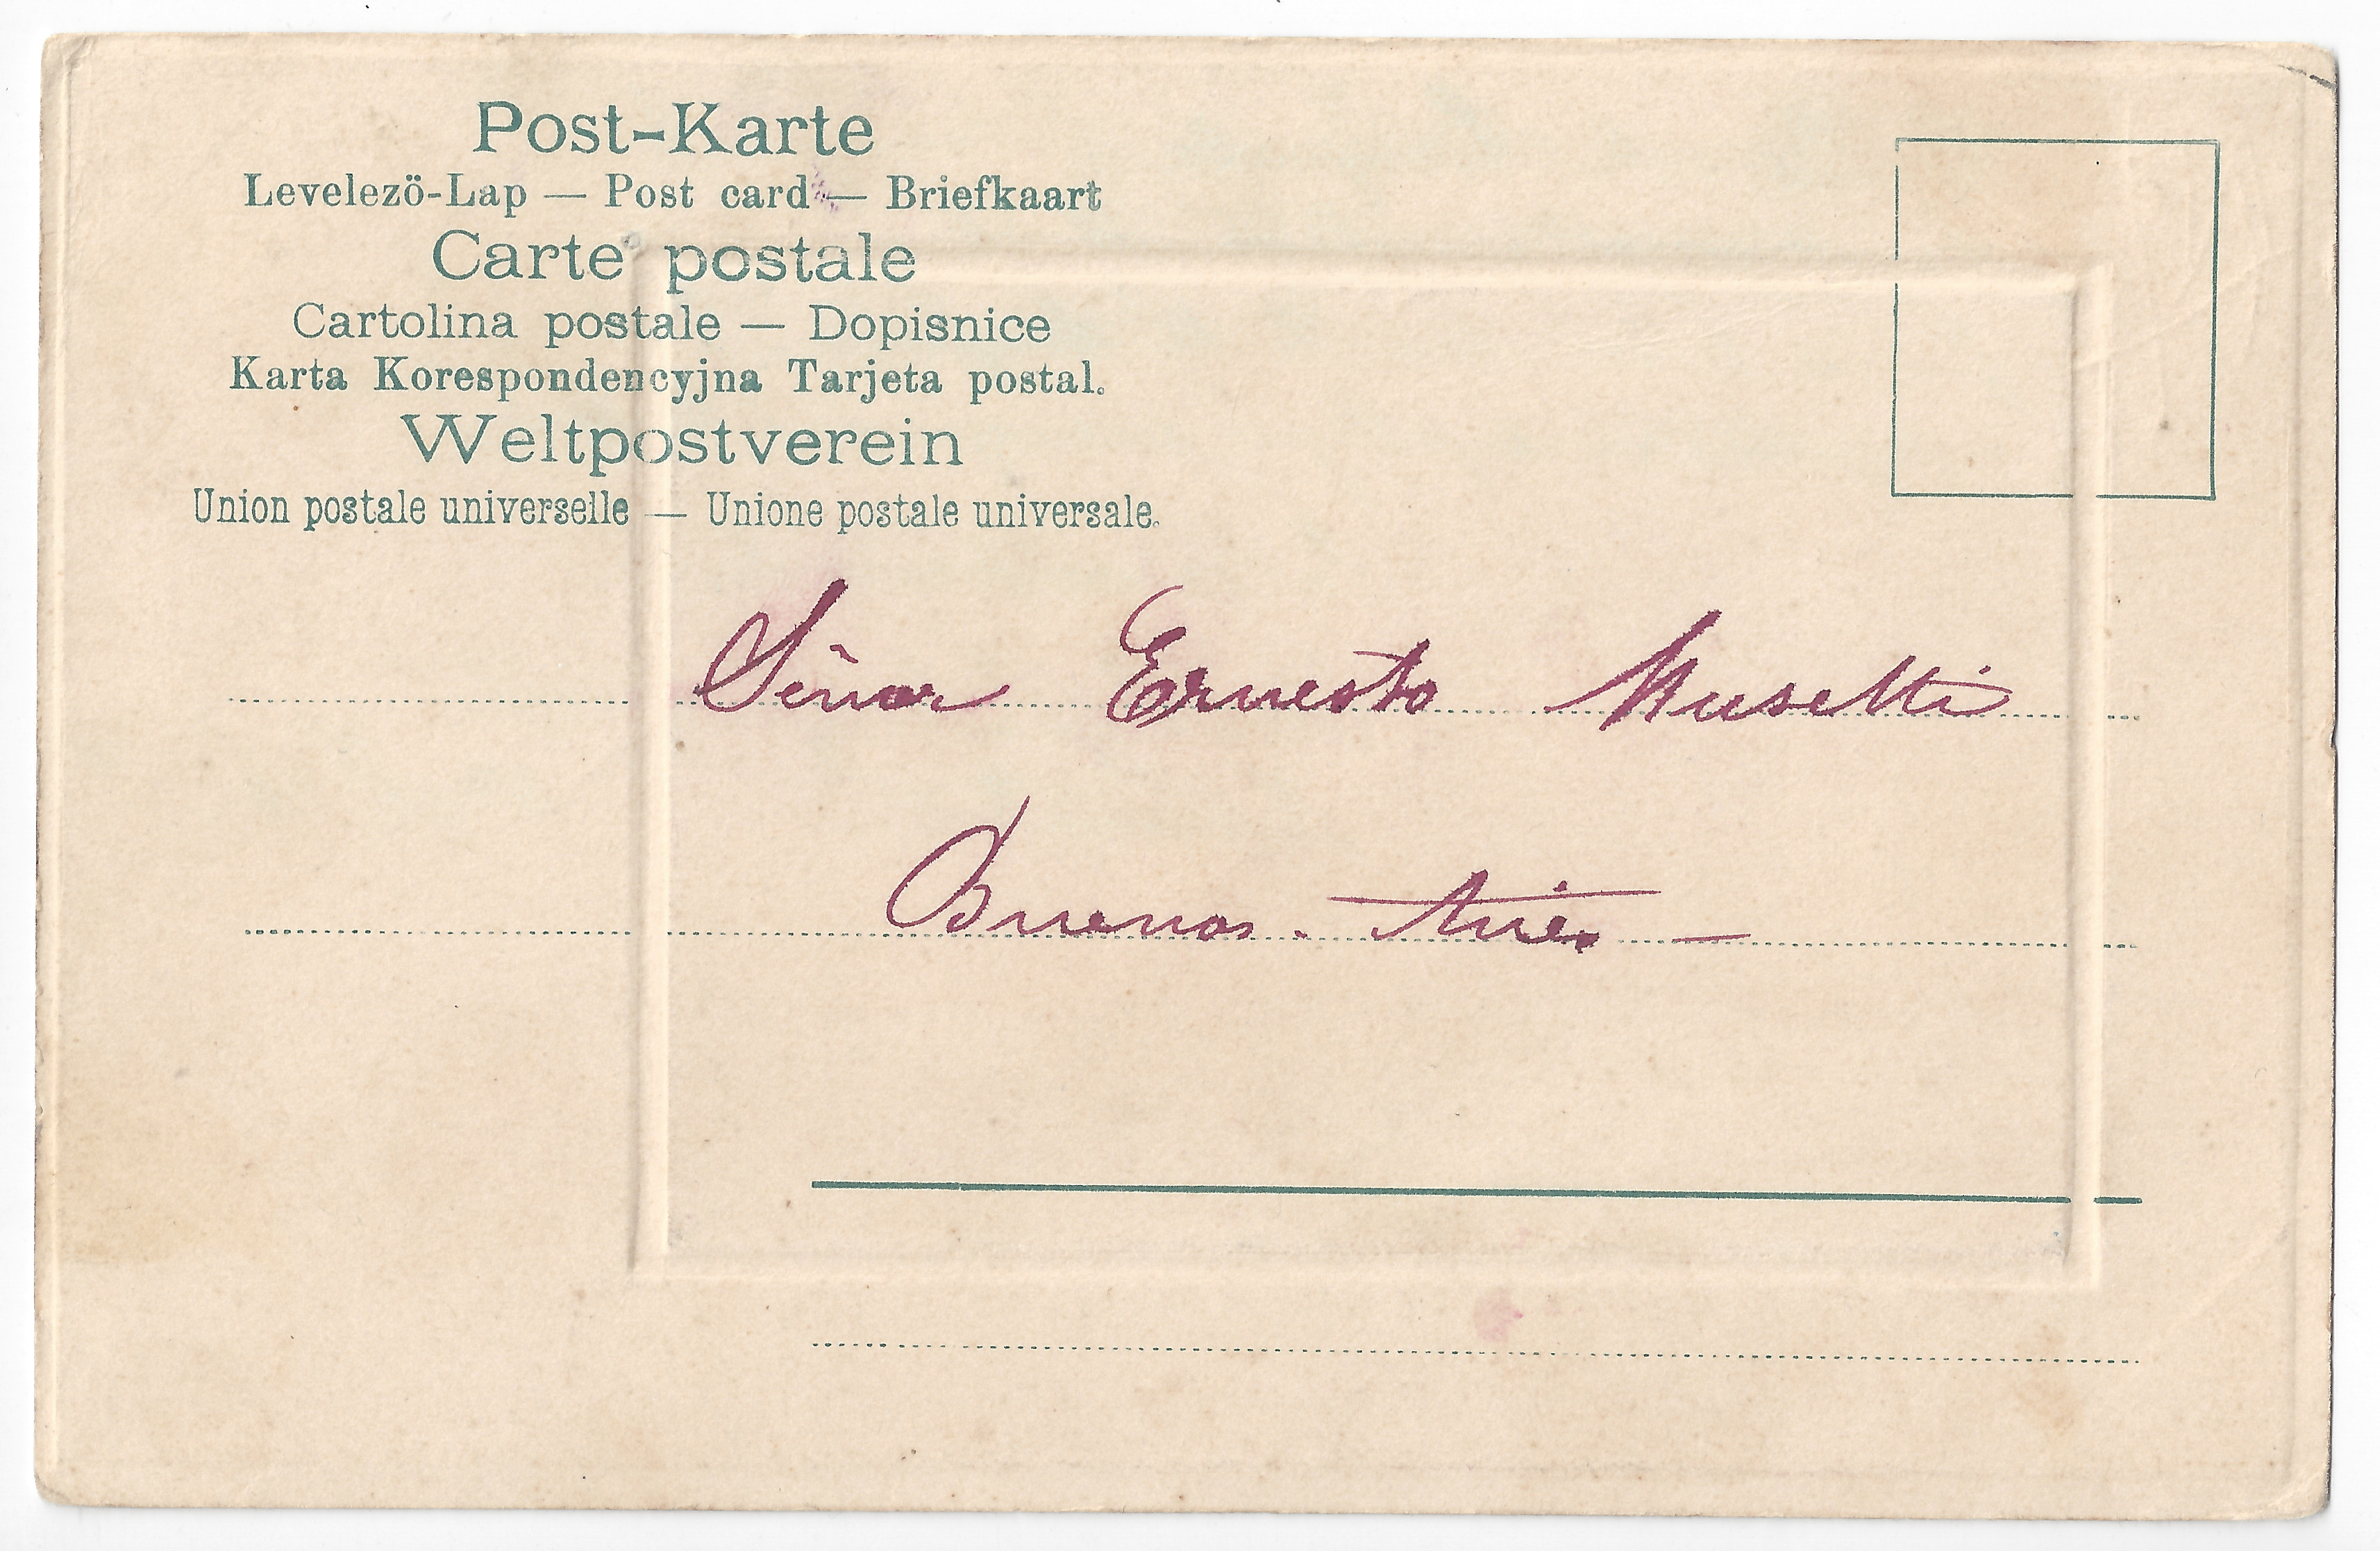 Post-Karte
Levelezö-Lap — Post card — Briefkaart
Carte postale
Cartolina postale — Dopisnice
Karta Korespondencyjna Tarjeta postal.
Weltpostverein
Union postale universelle — Unione postale universale.
Señor Ernesto Musetti
Buenos Aires —